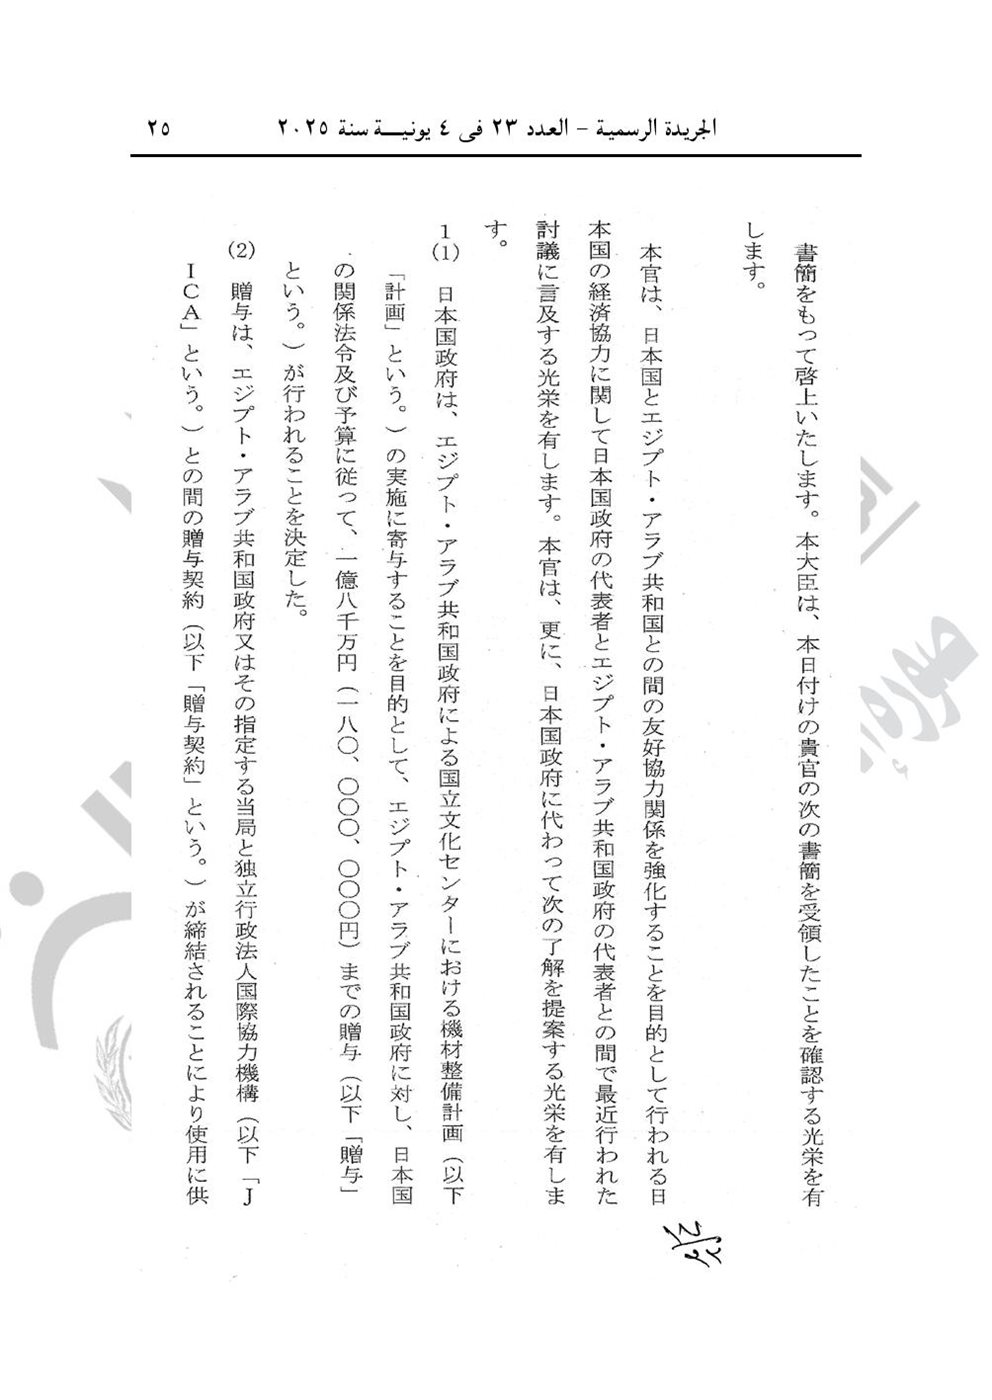 الجريدة الرسمية – العدد ٢٣ فى ٤ يونيـــة سنة ٢٠٢٥
٢٥
書簡をもって啓上いたします。本大臣は、本日付けの貴官の次の書簡を受領したことを確認する光栄を有
します。
本官は、日本国とエジプト・アラブ共和国との間の友好協力関係を強化することを目的として行われる日
本国の経済協力に関して日本国政府の代表者とエジプト・アラブ共和国政府の代表者との間で最近行われた
討議に言及する光栄を有します。本官は、更に、日本国政府に代わって次の了解を提案する光栄を有しま
す。
1(1) 日本国政府は、エジプト・アラブ共和国政府による国立文化センターにおける機材整備計画（以下
「計画」という。）の実施に寄与することを目的として、エジプト・アラブ共和国政府に対し、日本国
の関係法令及び予算に従って、一億八千万円（一八〇、〇〇〇、〇〇〇円）までの贈与（以下「贈与」
という。）が行われることを決定した。
(2) 贈与は、エジプト・アラブ共和国政府又はその指定する当局と独立行政法人国際協力機構（以下「J
ICA」という。）との間の贈与契約（以下「贈与契約」という。）が締結されることにより使用に供